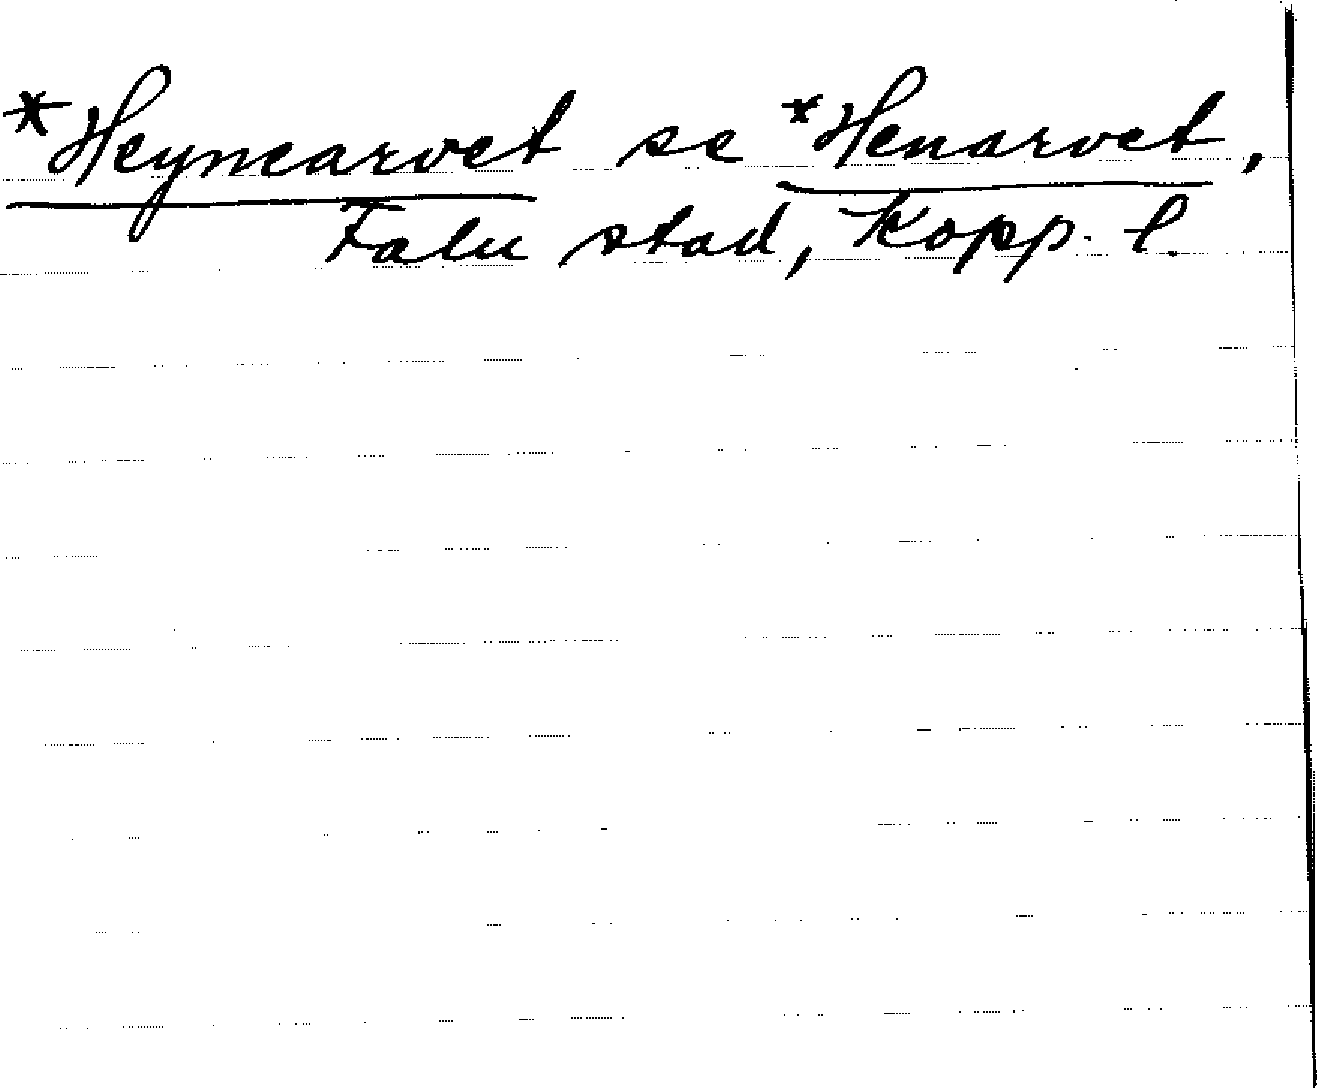 *Heynearvet se *Henarvet,
Falu stad, Kopp. l.